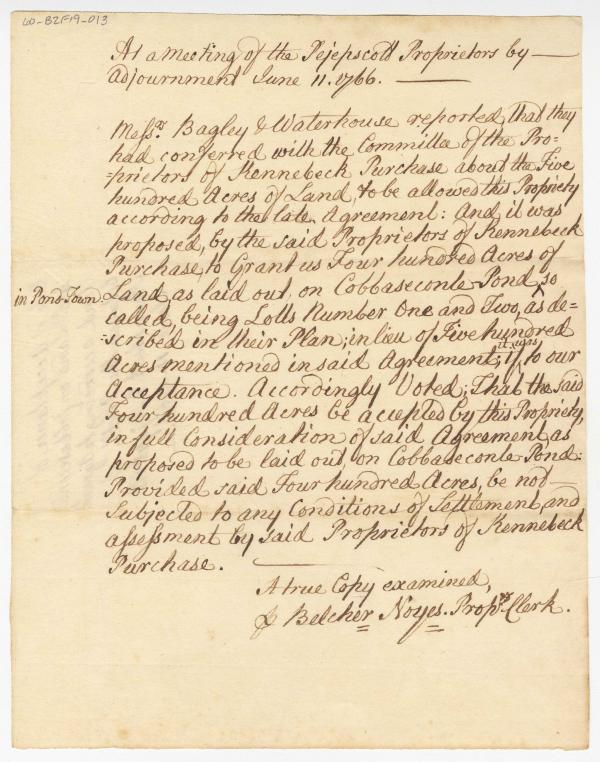 60-B2F19-013
At a meeting of the Pejepscott Proprietors by —
adjournment June 11. 1766. ———
Messrs. Bagley & Waterhouse reported, that they
had conferred with the Committee of the Pro-
-prietors of Kennebeck Purchase about the Five
hundred Acres of Land, to be allowed this Propriety
according to the late Agreement: And it was
proposed, by the said Proprietors of Kennebeck
Purchase, to Grant us Four hundred Acres of
in Pond-Town Land, as laid out, on Cobbaseconte-Pond, so
called, being Lotts Number One and Two, as de-
-scribed in their Plan; in lieu of Five hundred
Acres mentioned in said Agreement; if it was to our
Acceptance. Accordingly Voted; That the said
Four hundred Acres be accepted by this Propriety,
in full Consideration of said Agreement as
proposed to be laid out, on Cobbaseconte-Pond:
Provided said Four hundred Acres, be not —
Subjected to any Conditions of Settlement, and
assessment by said Proprietors of Kennebeck
Purchase. ———
A true Copy examined,
Belcher Noyes. Proprs. Clerk.